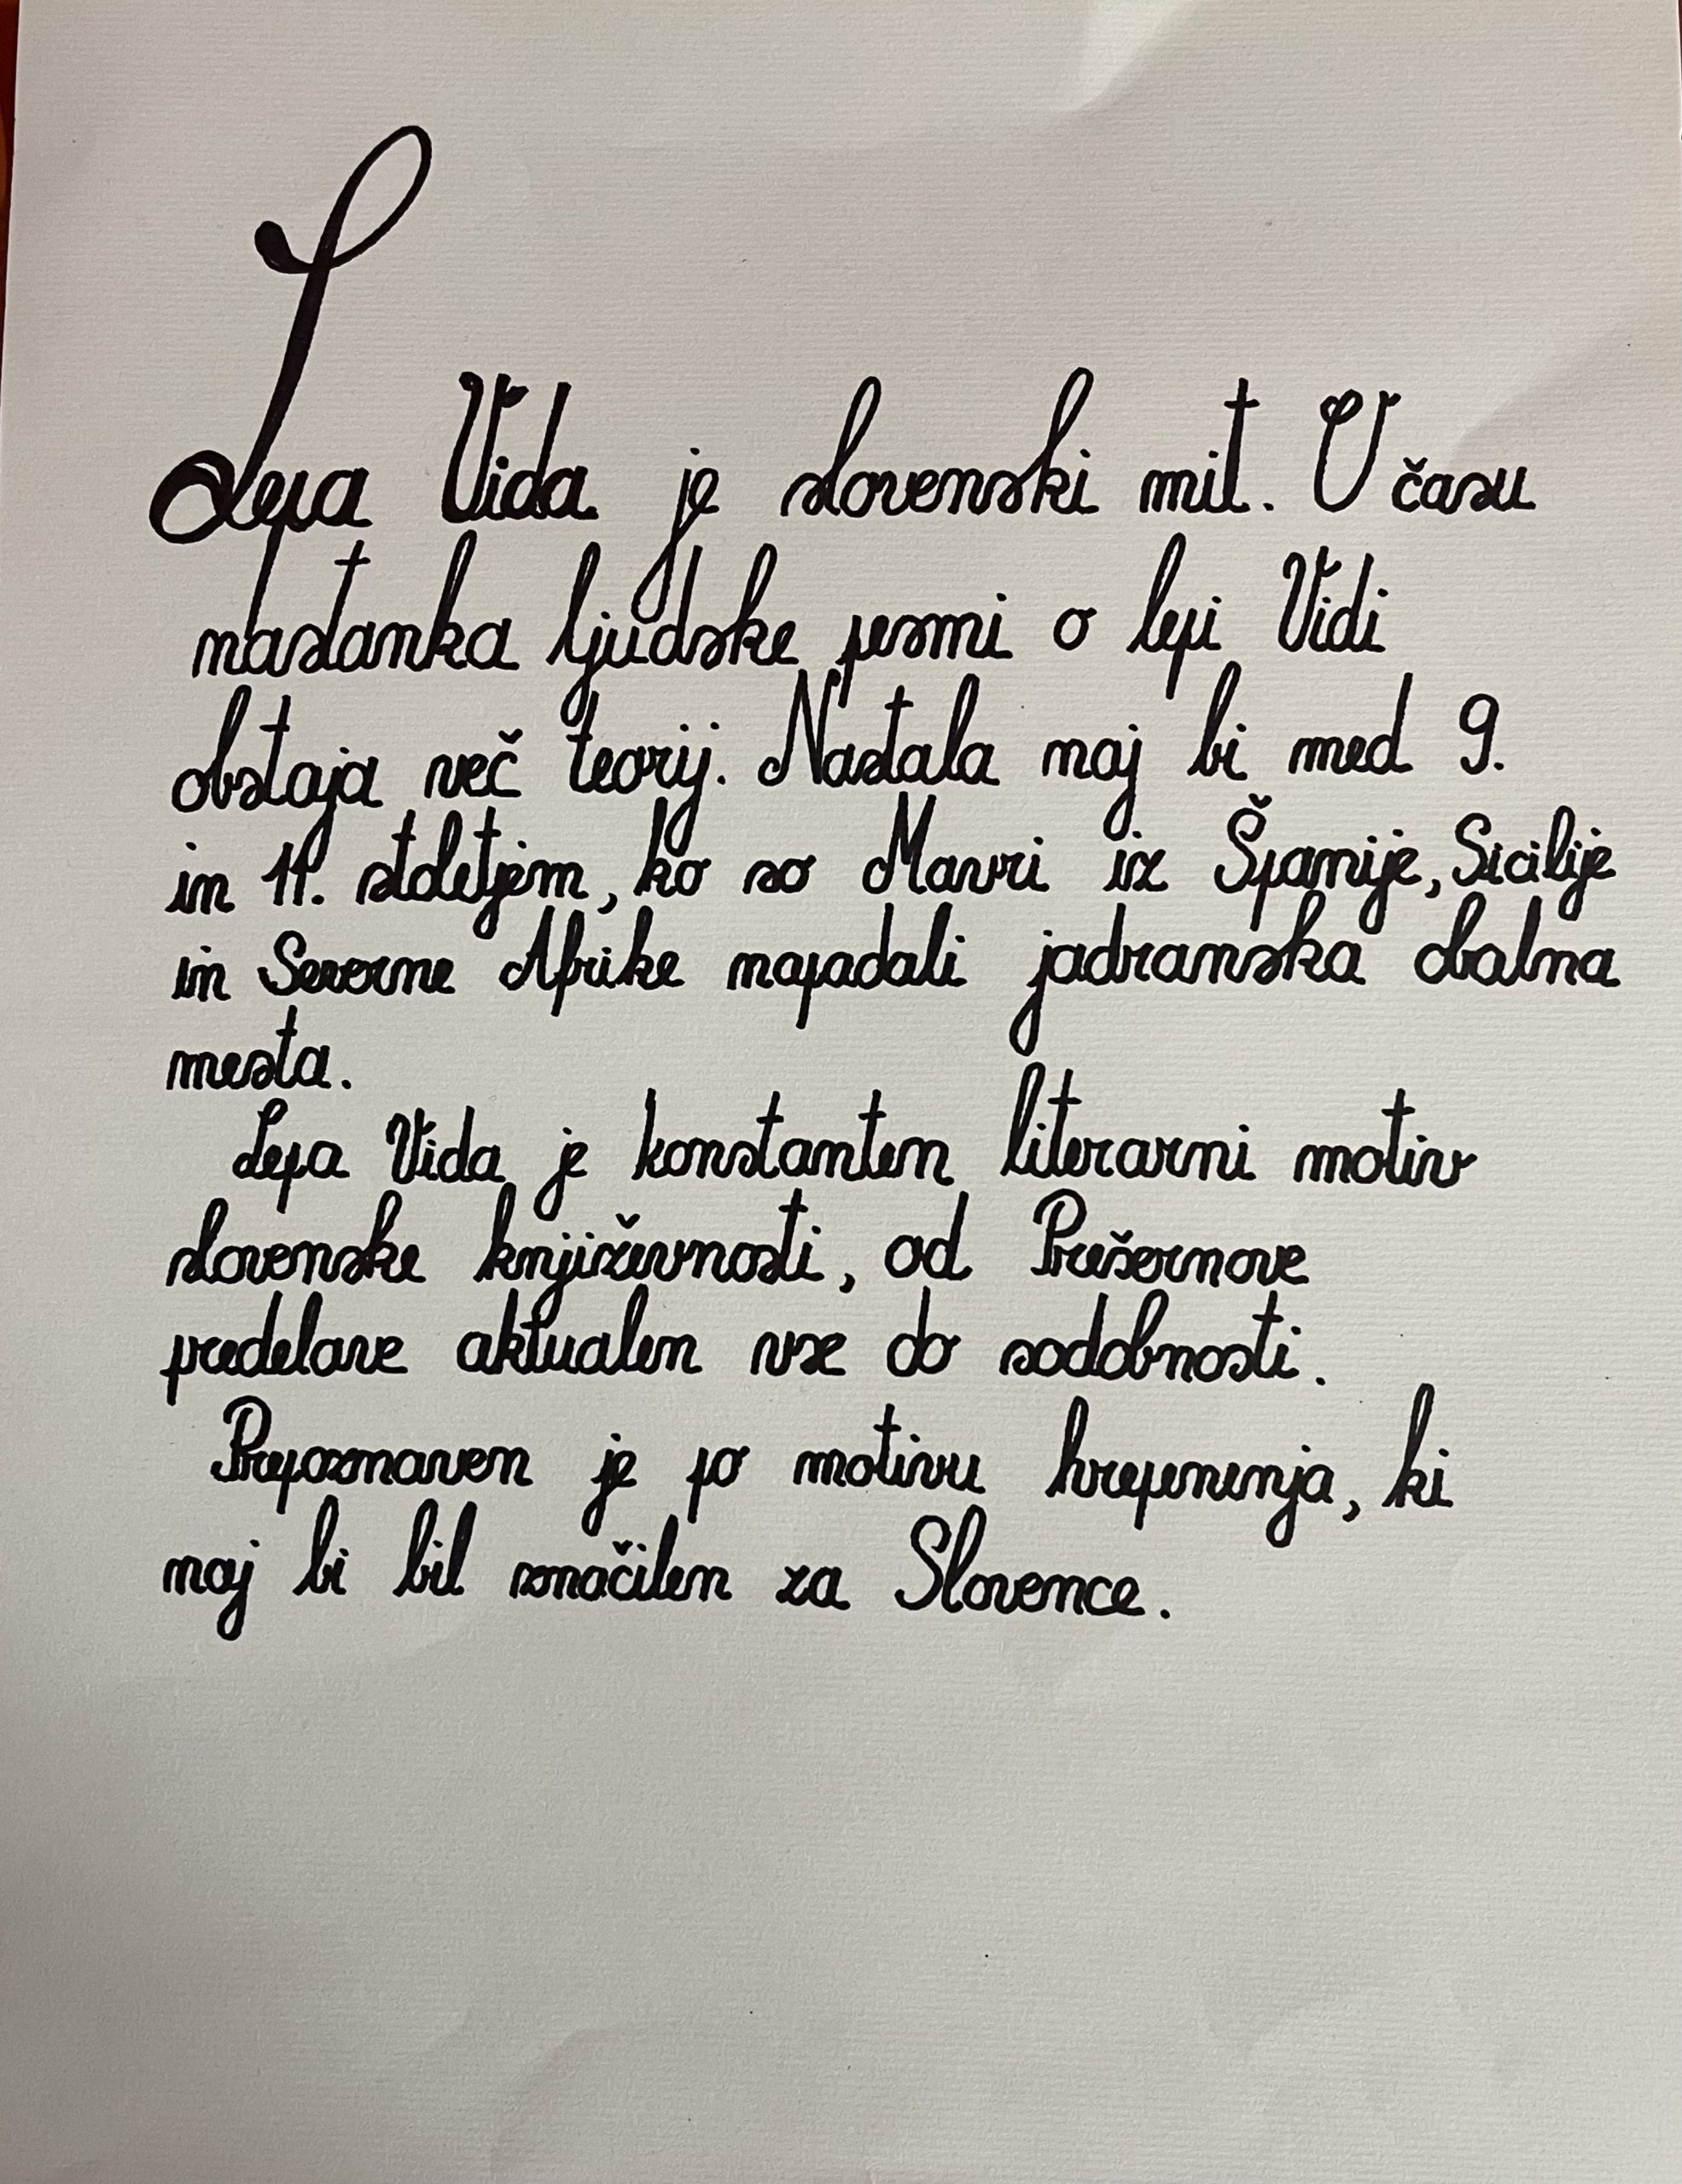 Lepa Vida je slovenski mit. V času
nastanka ljudske pesmi o lepi Vidi
obstaja več teorij. Nastala naj bi med 9.
in 11. stoletjem, ko so Mavri iz Španije, Sicilije
in Severne Afrike napadali jadranska obalna
mesta.
Lepa Vida je konstanten literarni motiv
slovenske književnosti, od Prešernove
predelave aktualen vse do sodobnosti.
Prepoznaven je po motivu hrepenenja, ki
naj bi bil značilen za Slovence.